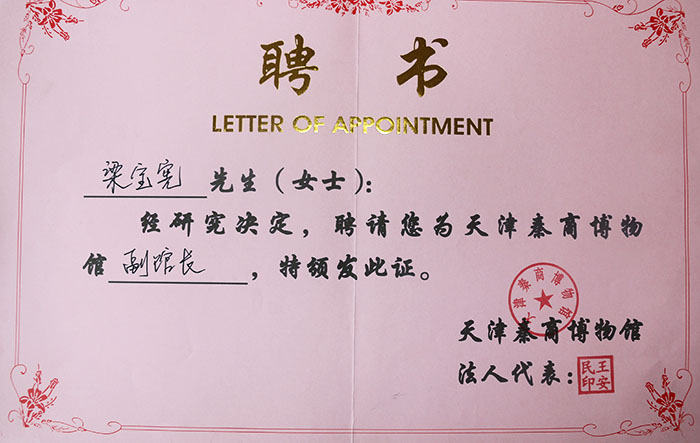 聘 书
LETTER OF APPOINTMENT
梁宝宪 先生（女士）：
经研究决定，聘请您为天津秦商博物
馆副馆长，特颁发此证。
天津秦商博物馆
天津秦商博物馆
法人代表：
王安民印